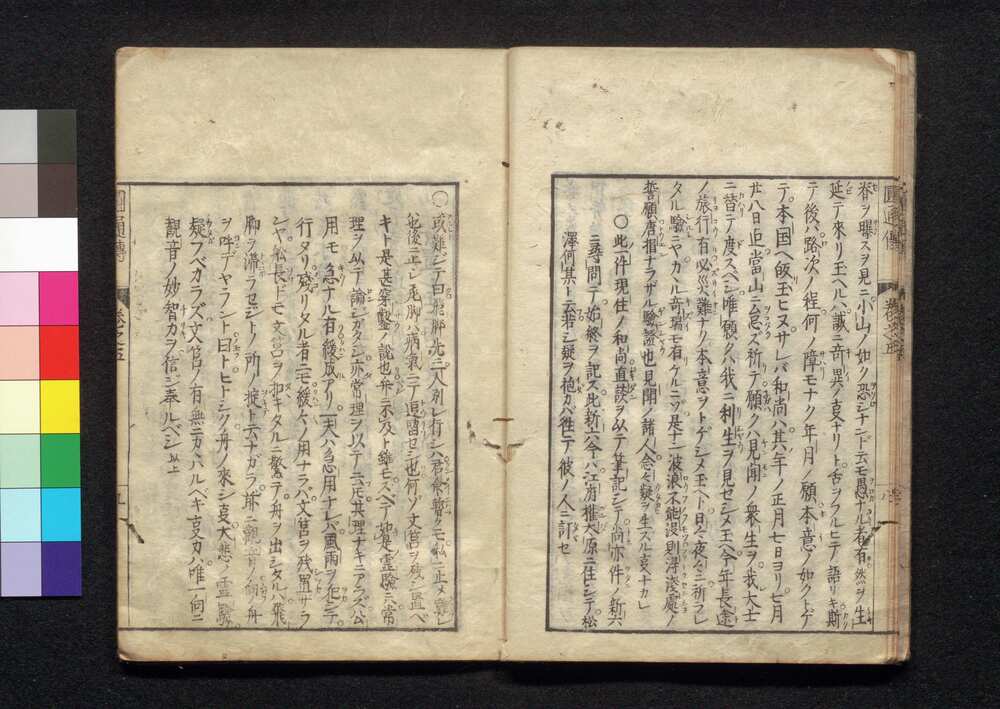 脊ヲ曝スヲ見ニ小山ノ如ク恐シナンド云モ愚ナル者有然ヲ生
延テ來リ玉ヘルハ誠ニ奇異ノ事ナリト舌ヲフルヒテ語リキ斯
テ後ハ路次ノ程何ノ障モナク年月ノ願本意ノ如クトゲ
テ本国ヘ皈玉ヒヌサレバ和尚ハ其年ノ正月七日ヨリ七月
廿八日迠當山ニ忌ズ祈テ願クハ見聞ノ衆生ヲ我大士
ニ替テ度スベシ唯願クハ我ニ利生ヲ見セシメ玉ヘ年長遠
ノ旅行有必災難ナク本意ヲトゲシメ玉ヘト日々夜々ニ祈ラレ
タル驗ニヤカヽル奇瑞モ有ケルニヅ是十二波浪不能没則得淺處ノ
誓願唐捐ナラザル驗證也見聞ノ諸人念々疑ヲ生スル事ナカレ
〇此一件現住ノ和尚直談ヲ以テ筆記シテ尚亦件ノ新六
ニ尋問テ始終ヲ記ス此新六今ハ江府大原ニ住シテ松
澤何其ト云若シ疑ヲ抱カバ往テ彼ノ人ニ訂セ
〇或難ジテ曰飛脚先ニ二人別レ行シハ君命暫クモ私ニ止メ難レ
也後ニ止シ飛脚ハ病氣ニテ逗留セシ也何ゾ文筥ヲ残シ置ベ
キト是甚穿鑿ノ説也弁ニ不及ト雖モスベテ如是霊驗ハ常
理ヲ以テ論ジガタシ亦常理ヲ以テ云トモ其理ナキニアラズ公
用モ急ナル有緩成アリ一夫ハ急用ナレバ風雨ヲ犯シテ
行タリ残リタル者ニモ緩キノ用ナラバ文筥ヲ残置サラ
ンヤ船長トモ文筥ヲ扣キタルニ驚テ舟ヲ出シタルハ飛
脚ヲ滯ラセジトノ所ノ掟ト云ナガラ
ヲ呼デヤラントヒトシク舟ノ來シ事大悲ノ霊驗
疑フベカラズ文筥ノ有無ニカヽハルベキ事カハ唯一向ニ
観音ノ妙智力ヲ信ジ奉ルベシ以上
圓通傳
卷之五